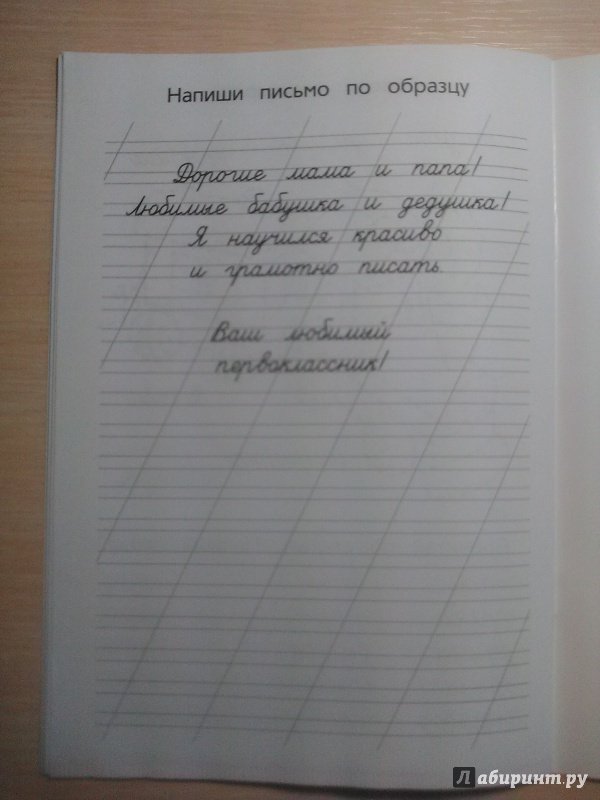 Напиши письмо по образцу
Дорогие мама и папа!
Любимые бабушка и дедушка!
Я научился красиво
и грамотно писать.
Ваш любимый
первоклассник!
Лабиринт.ру